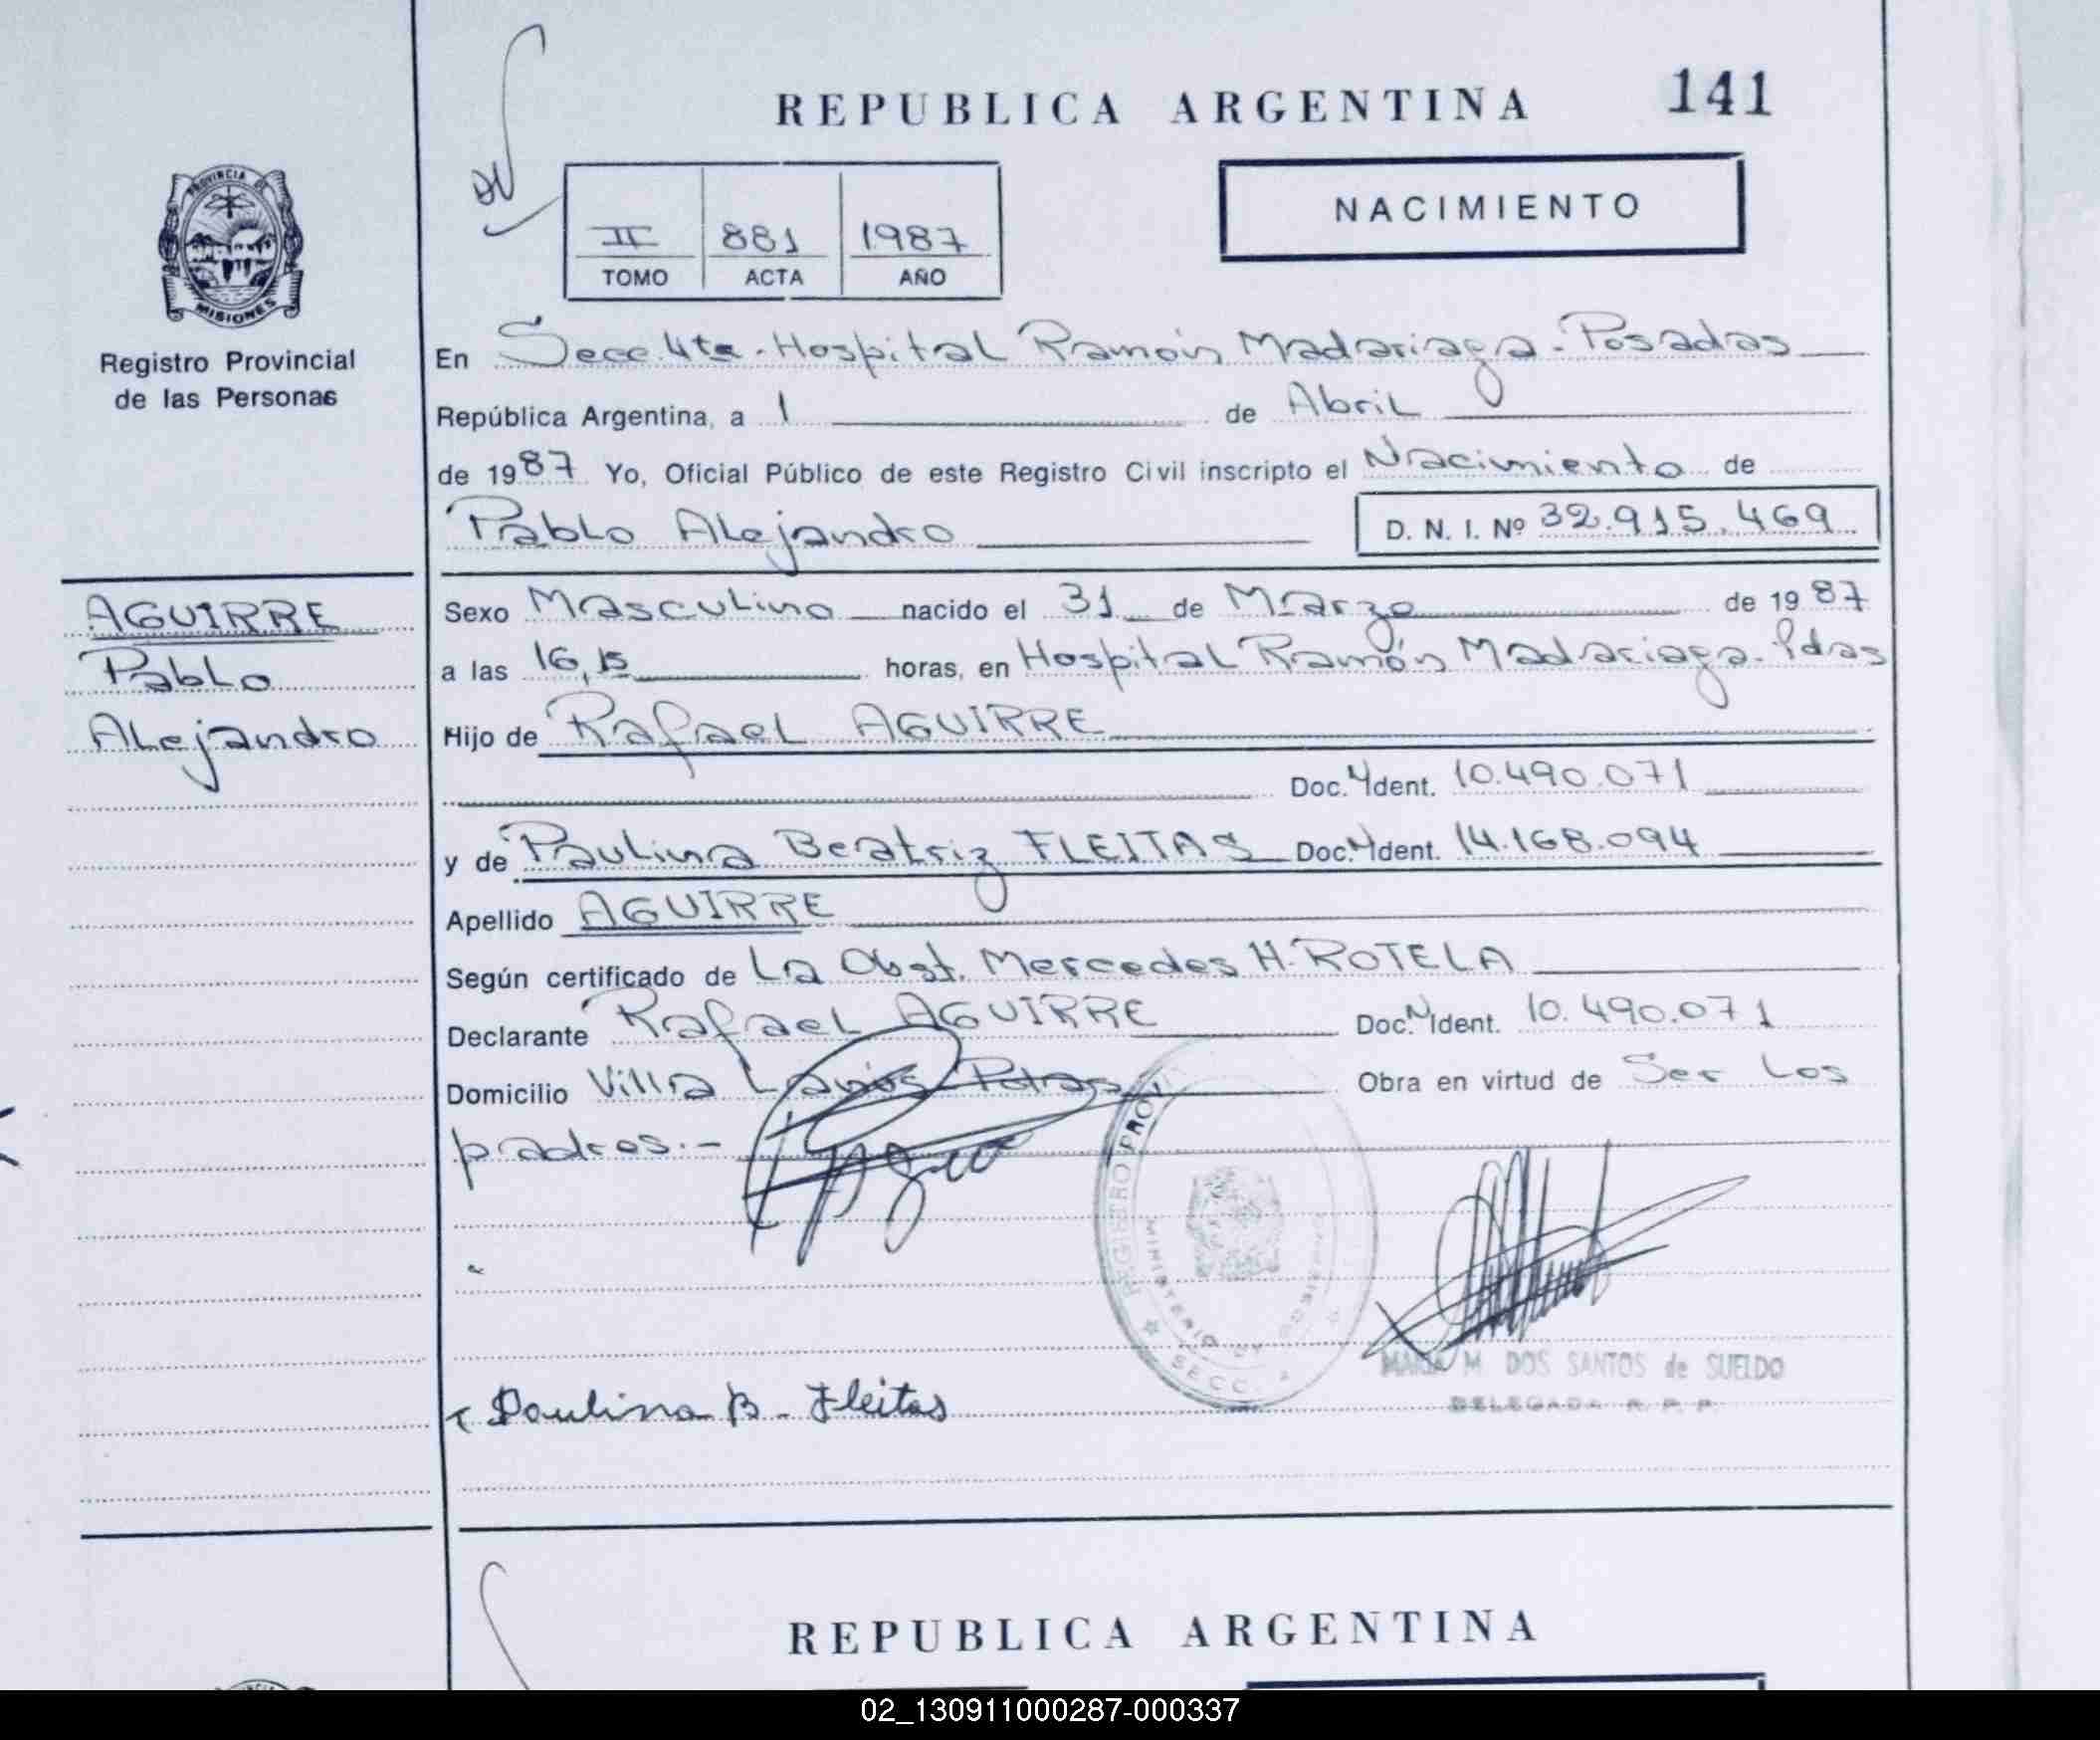 REPUBLICA ARGENTINA 141
PROVINCIA DE
MISIONES
Registro Provincial
de las Personas
II 881 1987
TOMO ACTA AÑO
NACIMIENTO
En Secc. 4ta - Hospital Ramón Madariaga - Posadas
República Argentina, a 1 de Abril
de 1987 Yo, Oficial Público de este Registro Civil inscripto el Nacimiento de
Pablo Alejandro D. N. I. Nº 32.915.469
AGUIRRE
Pablo
Alejandro
Sexo Masculino nacido el 31 de Marzo de 1987
a las 16,15 horas, en Hospital Ramón Madariaga - Pdas
Hijo de Rafael AGUIRRE
Doc. Ident. 10.490.071
y de Paulina Beatriz FLEITAS Doc. Ident. 14.168.094
Apellido AGUIRRE
Según certificado de La Obst. Mercedes H. ROTELA
Declarante Rafael AGUIRRE Doc. Ident. 10.490.071
Domicilio Villa Lanús Pdas Obra en virtud de Ser Los
padres.-
REGISTRO PROV
MINISTERIO DE GOBIERNO
SECC.
MARIA M. DOS SANTOS de SUELDO
DELEGADA R. P. P.
Paulina B. Fleitas
REPUBLICA ARGENTINA
02_130911000287-000337